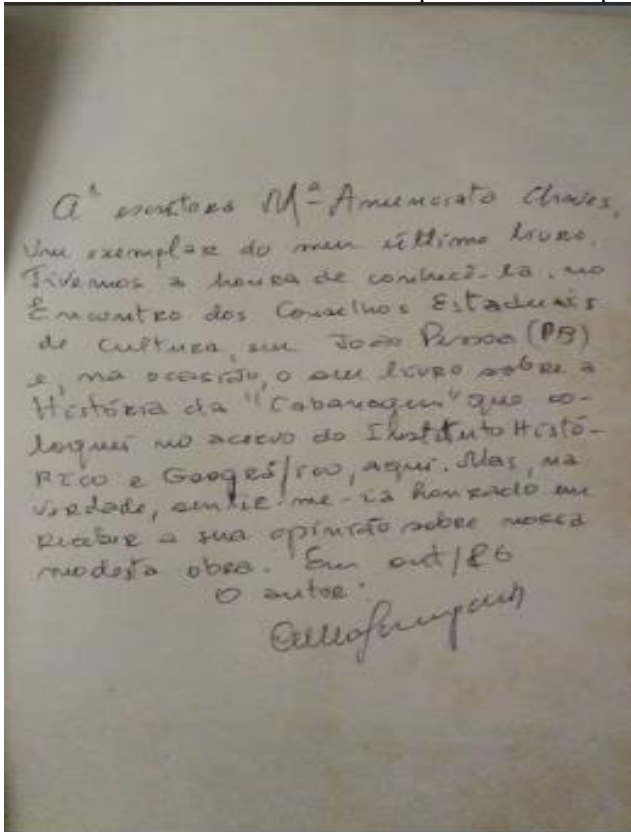 À escritora Mª Anunciato Chaves,
Um exemplar do meu último livro.
Tivemos a honra de conhecê-la, no
Encontro dos Conselhos Estaduais
de Cultura, em João Pessoa (PB)
e, na ocasião, o seu livro sobre a
História da "Cabanagem" que co-
loquei no acervo do Instituto Histó-
rico e Geográfico, aqui. Mas, na
verdade, sentir-me-ia honrado em
receber a sua opinião sobre nossa
modesta obra. Em out/86
O autor.